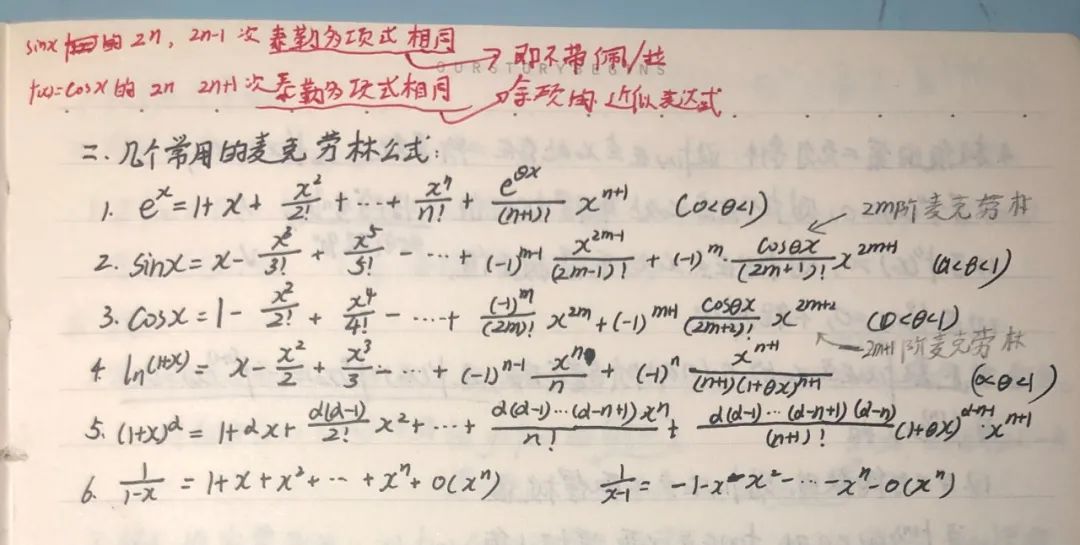 sinx 的 2n, 2n-1 次泰勒多项式相同
→ 即不带佩/拉
OURSTORYBEGINS
f(x)=cosx 的 2n 2n+1 次泰勒多项式相同
余项的近似表达式
二. 几个常用的麦克劳林公式:
1. e^x = 1+x+ x^2/2! + ··· + x^n/n! + e^{θx}/(n+1)! x^{n+1} (0<θ<1)
2m阶麦克劳林
2. sinx = x - x^3/3! + x^5/5! - ··· + (-1)^{m-1} x^{2m-1}/(2m-1)! + (-1)^m · cosθx/(2m+1)! x^{2m+1} (0<θ<1)
3. cosx = 1 - x^2/2! + x^4/4! - ··· + (-1)^m/(2m)! x^{2m} + (-1)^{m+1} cosθx/(2m+2)! x^{2m+2} (0<θ<1)
2m+1阶麦克劳林
4. ln(1+x) = x - x^2/2 + x^3/3 - ··· + (-1)^{n-1} x^n/n + (-1)^n x^{n+1}/(n+1)(1+θx)^{n+1} (0<θ<1)
5. (1+x)^α = 1+αx+ α(α-1)/2! x^2 + ··· + α(α-1)···(α-n+1)x^n/n! + α(α-1)···(α-n+1)(α-n)/(n+1)! (1+θx)^{α-n-1} · x^{n+1}
6. 1/(1-x) = 1+x+x^2+···+x^n+o(x^n) 1/(x-1) = -1-x-x^2-···-x^n-o(x^n)